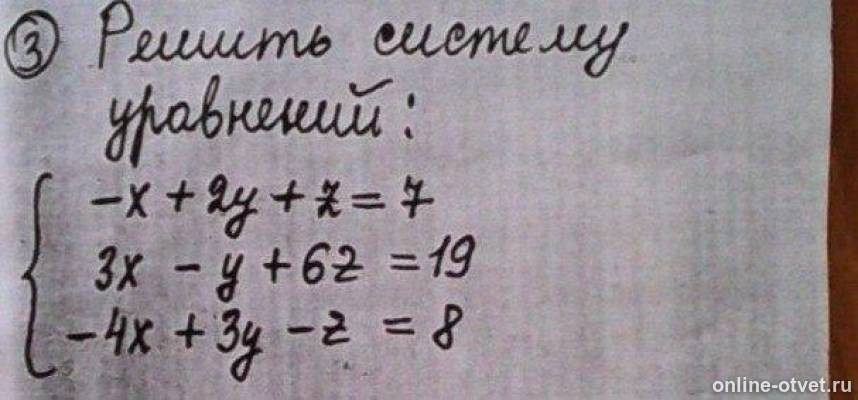 3 Решить систему
уравнений:
-x + 2y + z = 7
3x - y + 6z = 19
-4x + 3y - z = 8
online-otvet.ru